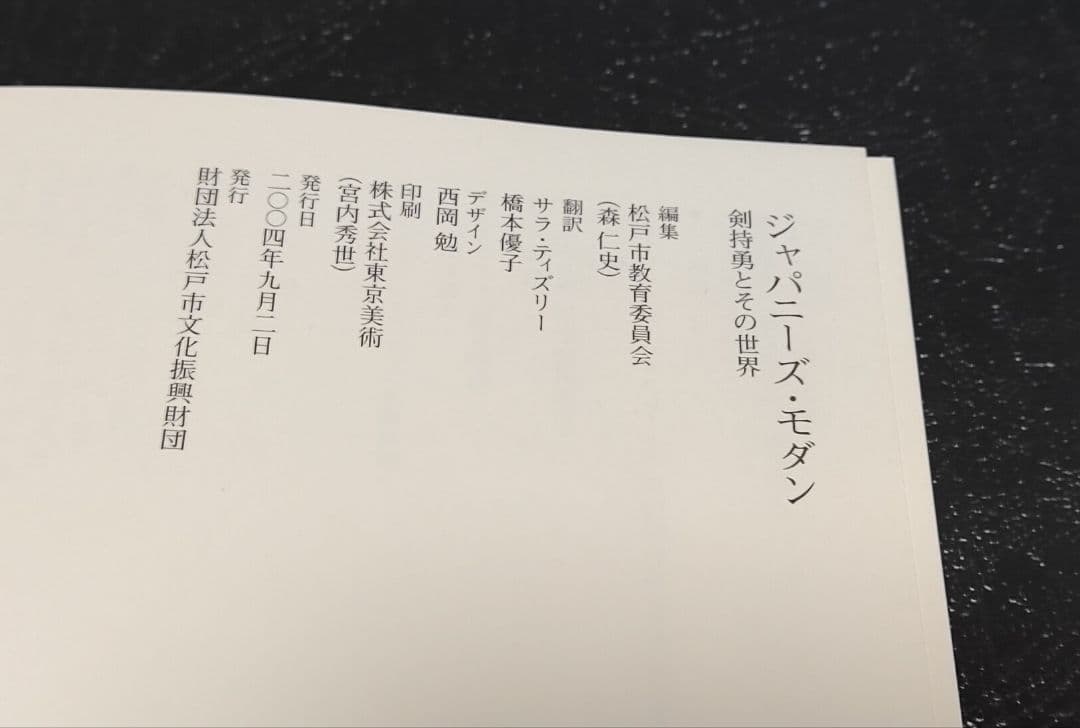 ジャパニーズ・モダン
剣持勇とその世界
編集
松戸市教育委員会
（森 仁史）
翻訳
サラ・ティズリー
橋本優子
デザイン
西岡 勉
印刷
株式会社東京美術
（宮内秀世）
発行日
二〇〇四年九月二日
発行
財団法人松戸市文化振興財団